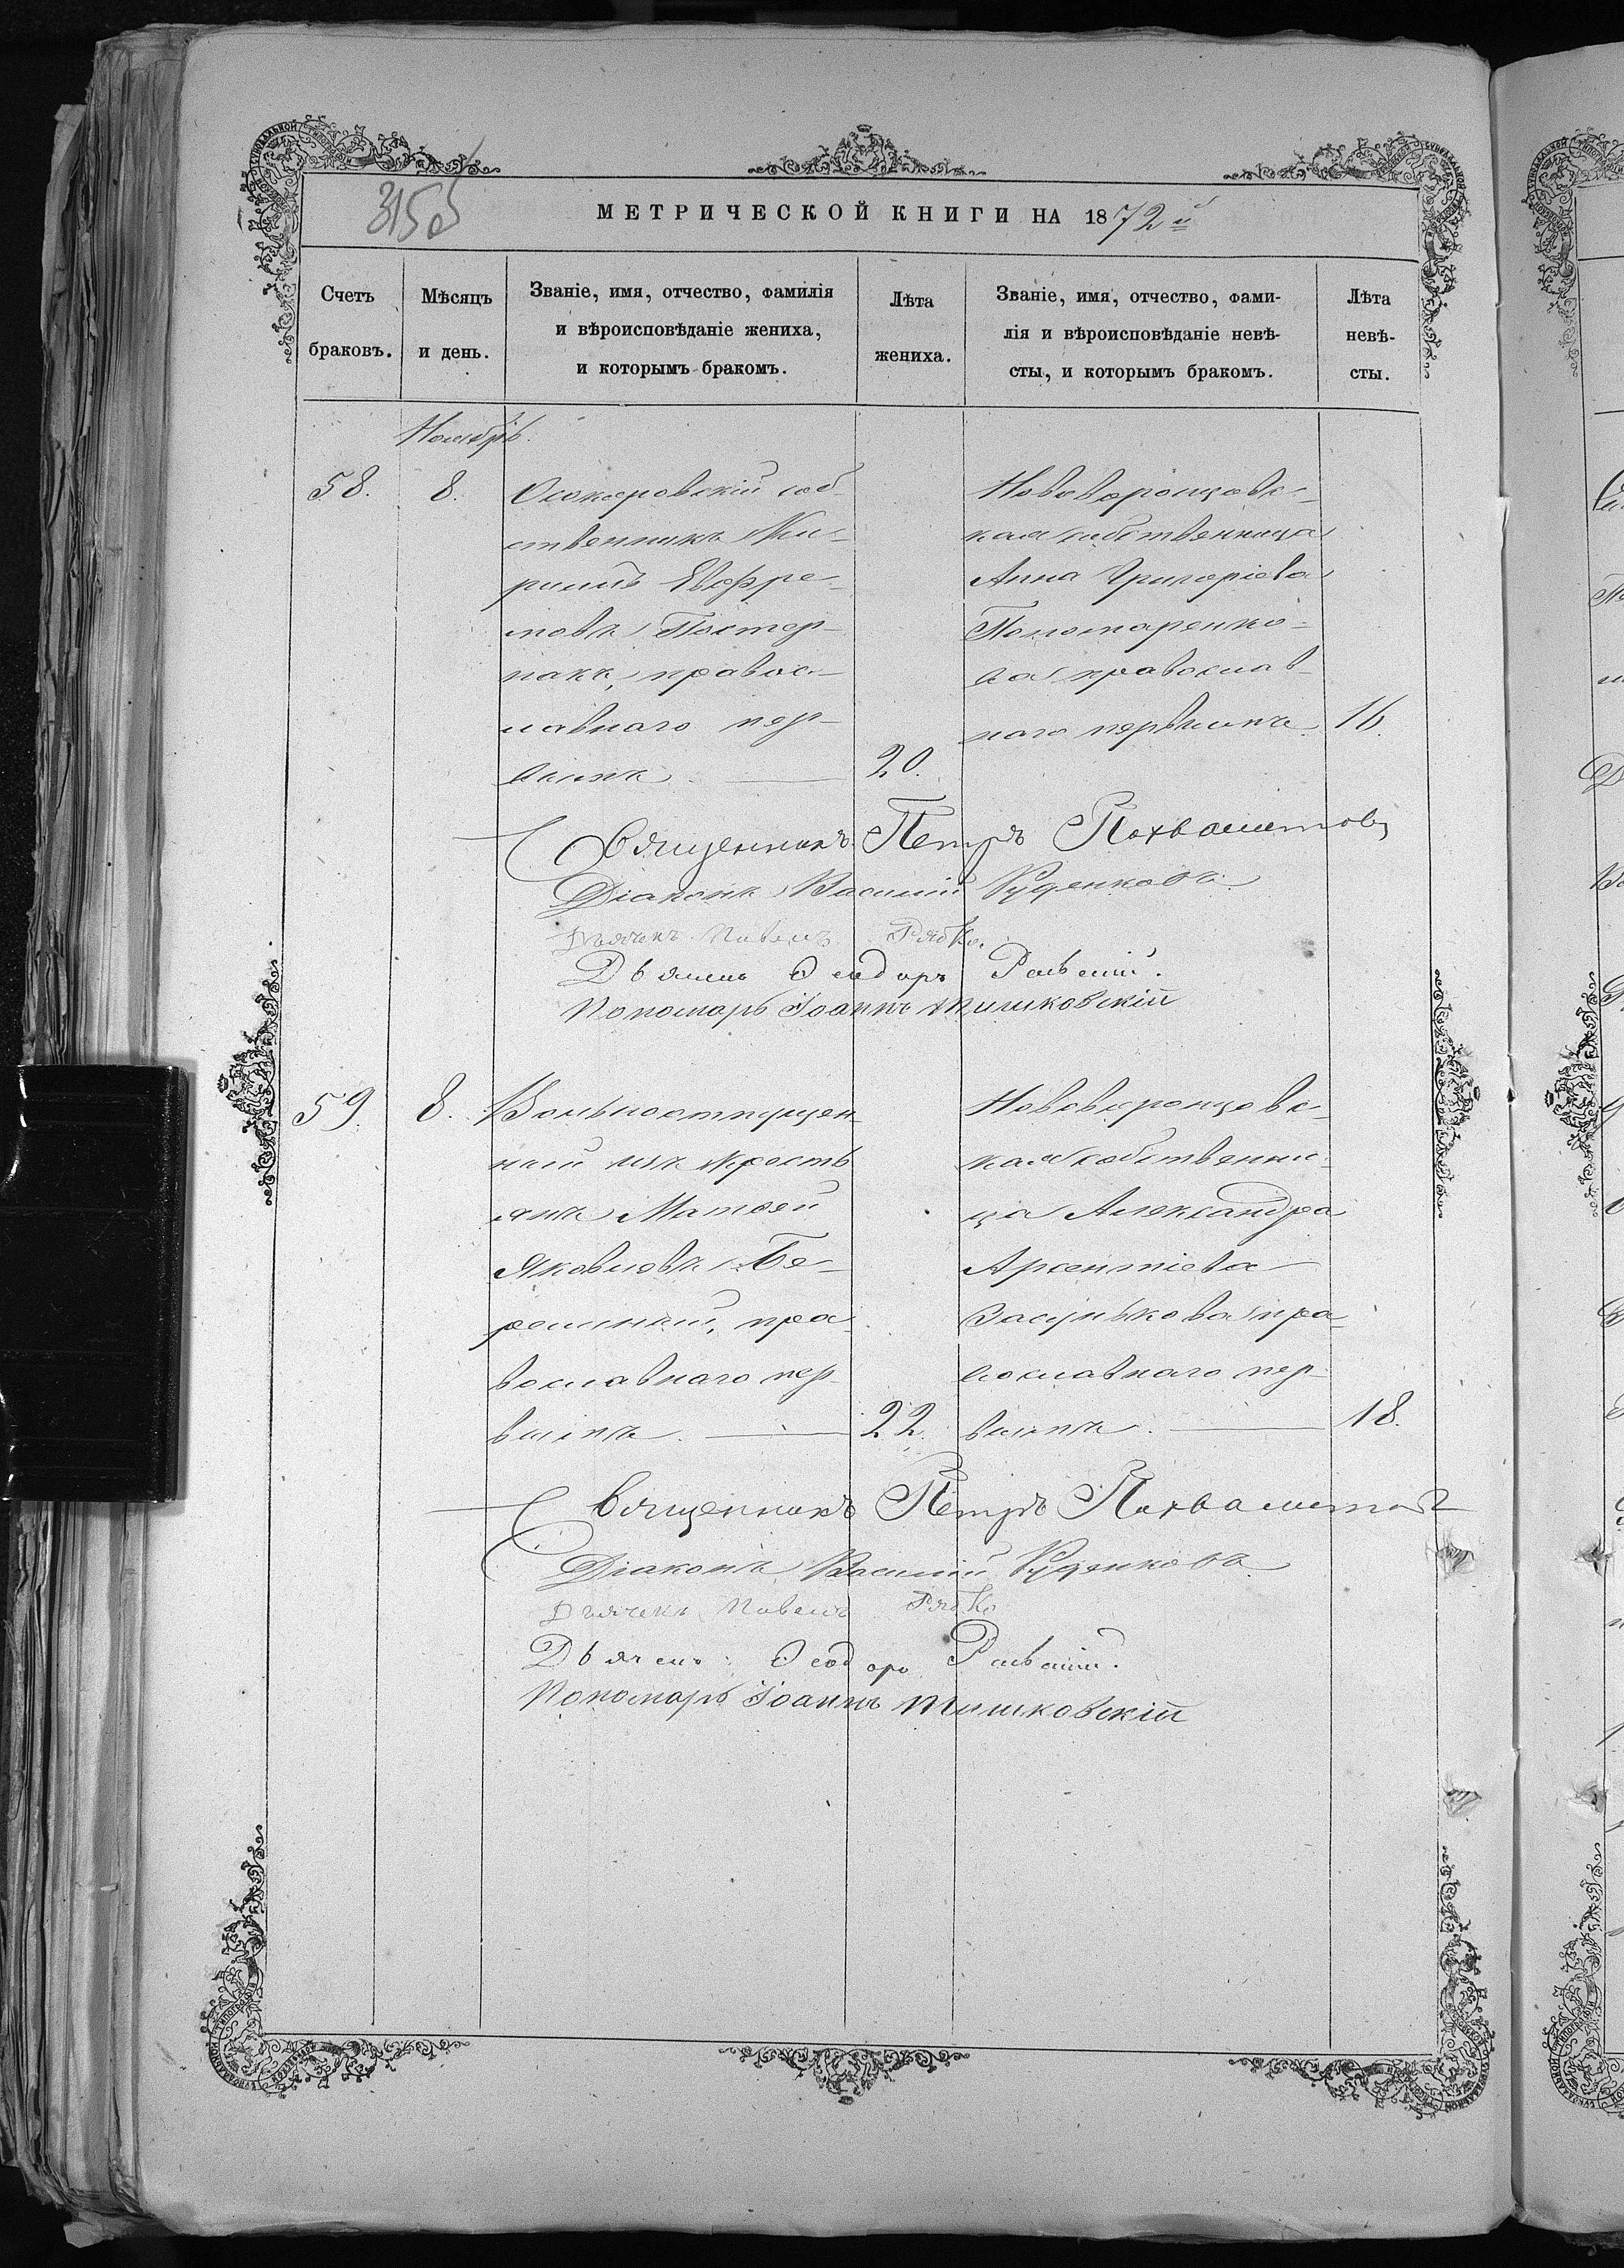 315 об
МЕТРИЧЕСКОЙ КНИГИ НА 1872й
Счетъ браковъ.
Мѣсяцъ и день.
Званіе, имя, отчество, фамилія
и вѣроисповѣданіе жениха,
и которымъ бракомъ.
Лѣта жениха.
Званіе, имя, отчество, фами-
лія и вѣроисповѣданіе невѣ-
сты, и которымъ бракомъ.
Лѣта невѣ-
сты.
Ноябрь.
58.
8.
Осокоровскій соб-
ственникъ Ки-
риллъ Евфре-
мовъ Пастер-
накъ, правос-
лавнаго пер-
вымъ.
20.
Нововоронцовс-
кая собственница
Анна Григоріева
Пономаренко-
ва православ-
наго первымъ.
16.
Священникъ Петръ Похвалитовъ
Діаконъ Василій Руденковъ.
Дьячекъ Павелъ Рябко.
Дьячекъ Ѳеодоръ
Пономарь Іоаннъ Тишковскій
59.
8.
Вольноотпущен-
ный изъ кресть
янъ Матѳей
Яковлевъ Бе-
режный, пра-
вославнаго пер-
вымъ.
22.
Нововоронцовс-
кая собственни-
ца Александра
Арсентіева
Засунькова пра-
вославнаго пер-
вымъ.
18.
Священникъ Петръ Похвалитовъ
Діаконъ Василій Руденковъ.
Дьячекъ Павелъ Рябко
Дьячекъ Ѳеодоръ
Пономарь Іоаннъ Тишковскій